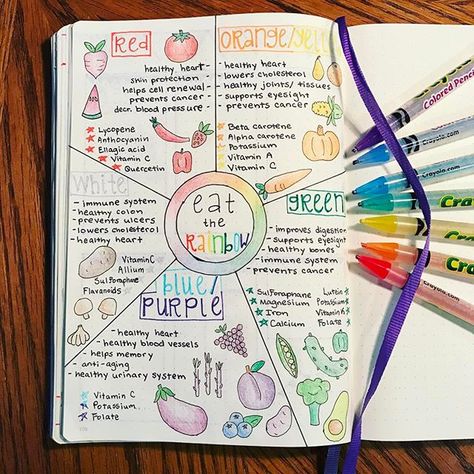 RED
healthy heart
skin protection
helps cell renewal
prevents cancer
decr. blood pressure
Lycopene
Anthocyanin
Ellagic acid
Vitamin C
Quercetin
orange/yell
- healthy heart
- lowers cholesterol
- healthy joints/tissues
- supports eyesight
- prevents cancer
Beta carotene
Alpha carotene
Potassium
Vitamin A
Vitamin C
White
- immune system
- healthy colon
- prevents ulcers
- lowers cholesterol
- healthy heart
Vitamin C
Allium
Sulforaphane
Flavanoids
eat
the
RAINBOW
green
- improves digestion
- supports eyesight
- healthy bones
- immune system
- prevents cancer
Sulforaphane Lutein
Magnesium Potassium
Iron Vitamin K
Calcium Folate
blue/
PURPLE
- healthy heart
- healthy blood vessels
- helps memory
- anti-aging
- healthy urinary system
Vitamin C
Potassium
Folate
Crayola
Colored Pencil
Crayola.com
Crayola.com
Crayola.com
Crayola.com
Crayola.com